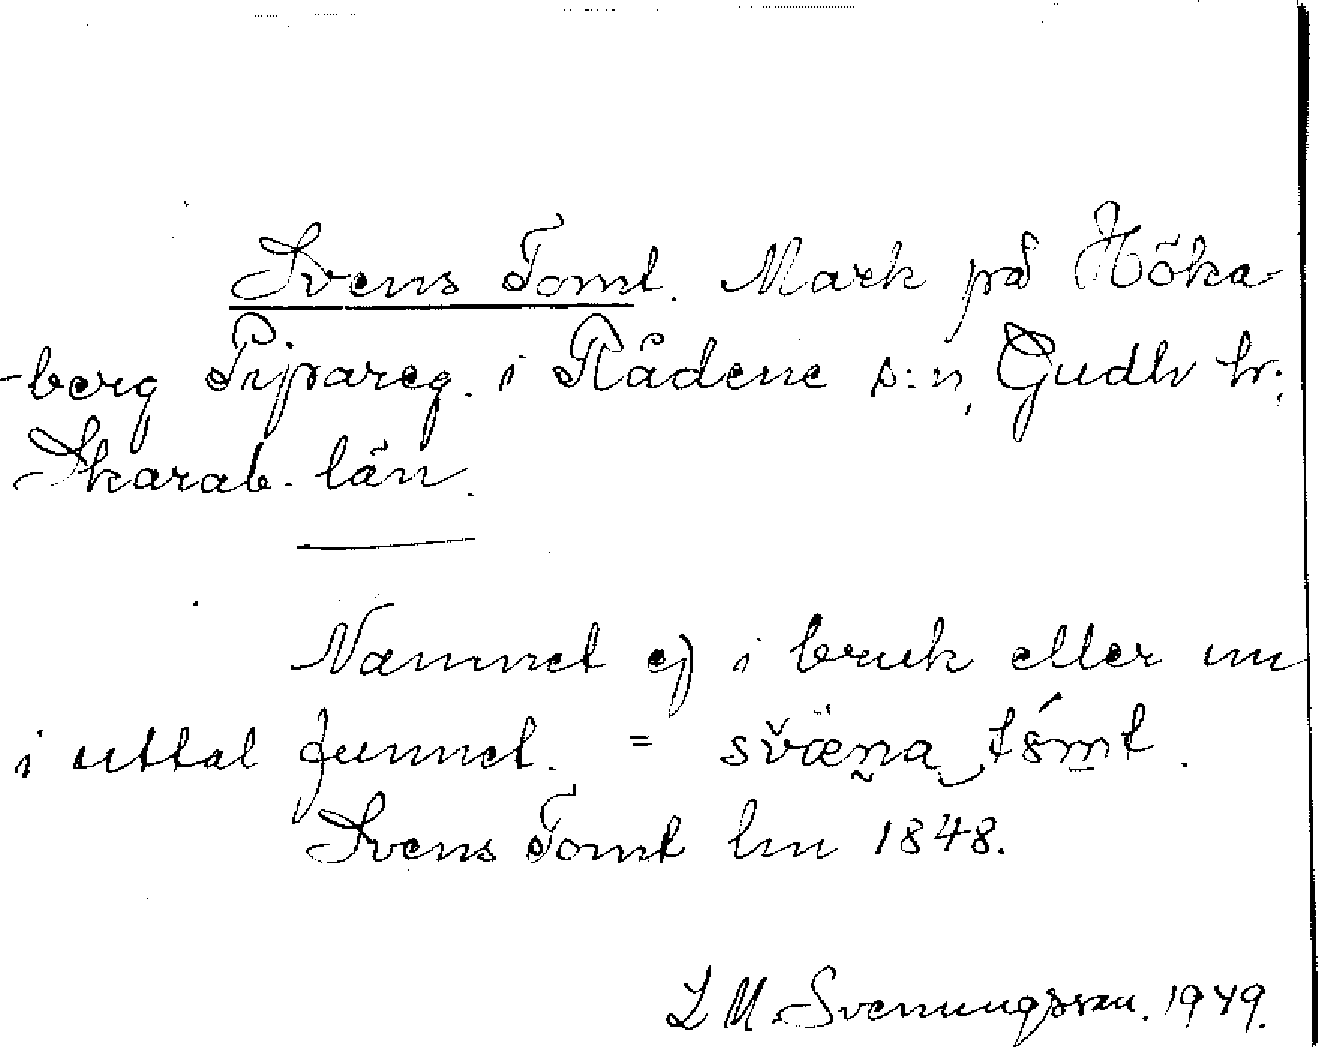 Svens Tomt. Mark på Höka
-berg Pipareg. i Rådene s:n, Gudh hr;
Skarab. län.
Namnet ej i bruk eller nu
i uttal funnet. =
Svens Tomt lm 1848.
L M. Svenungsson. 1949.